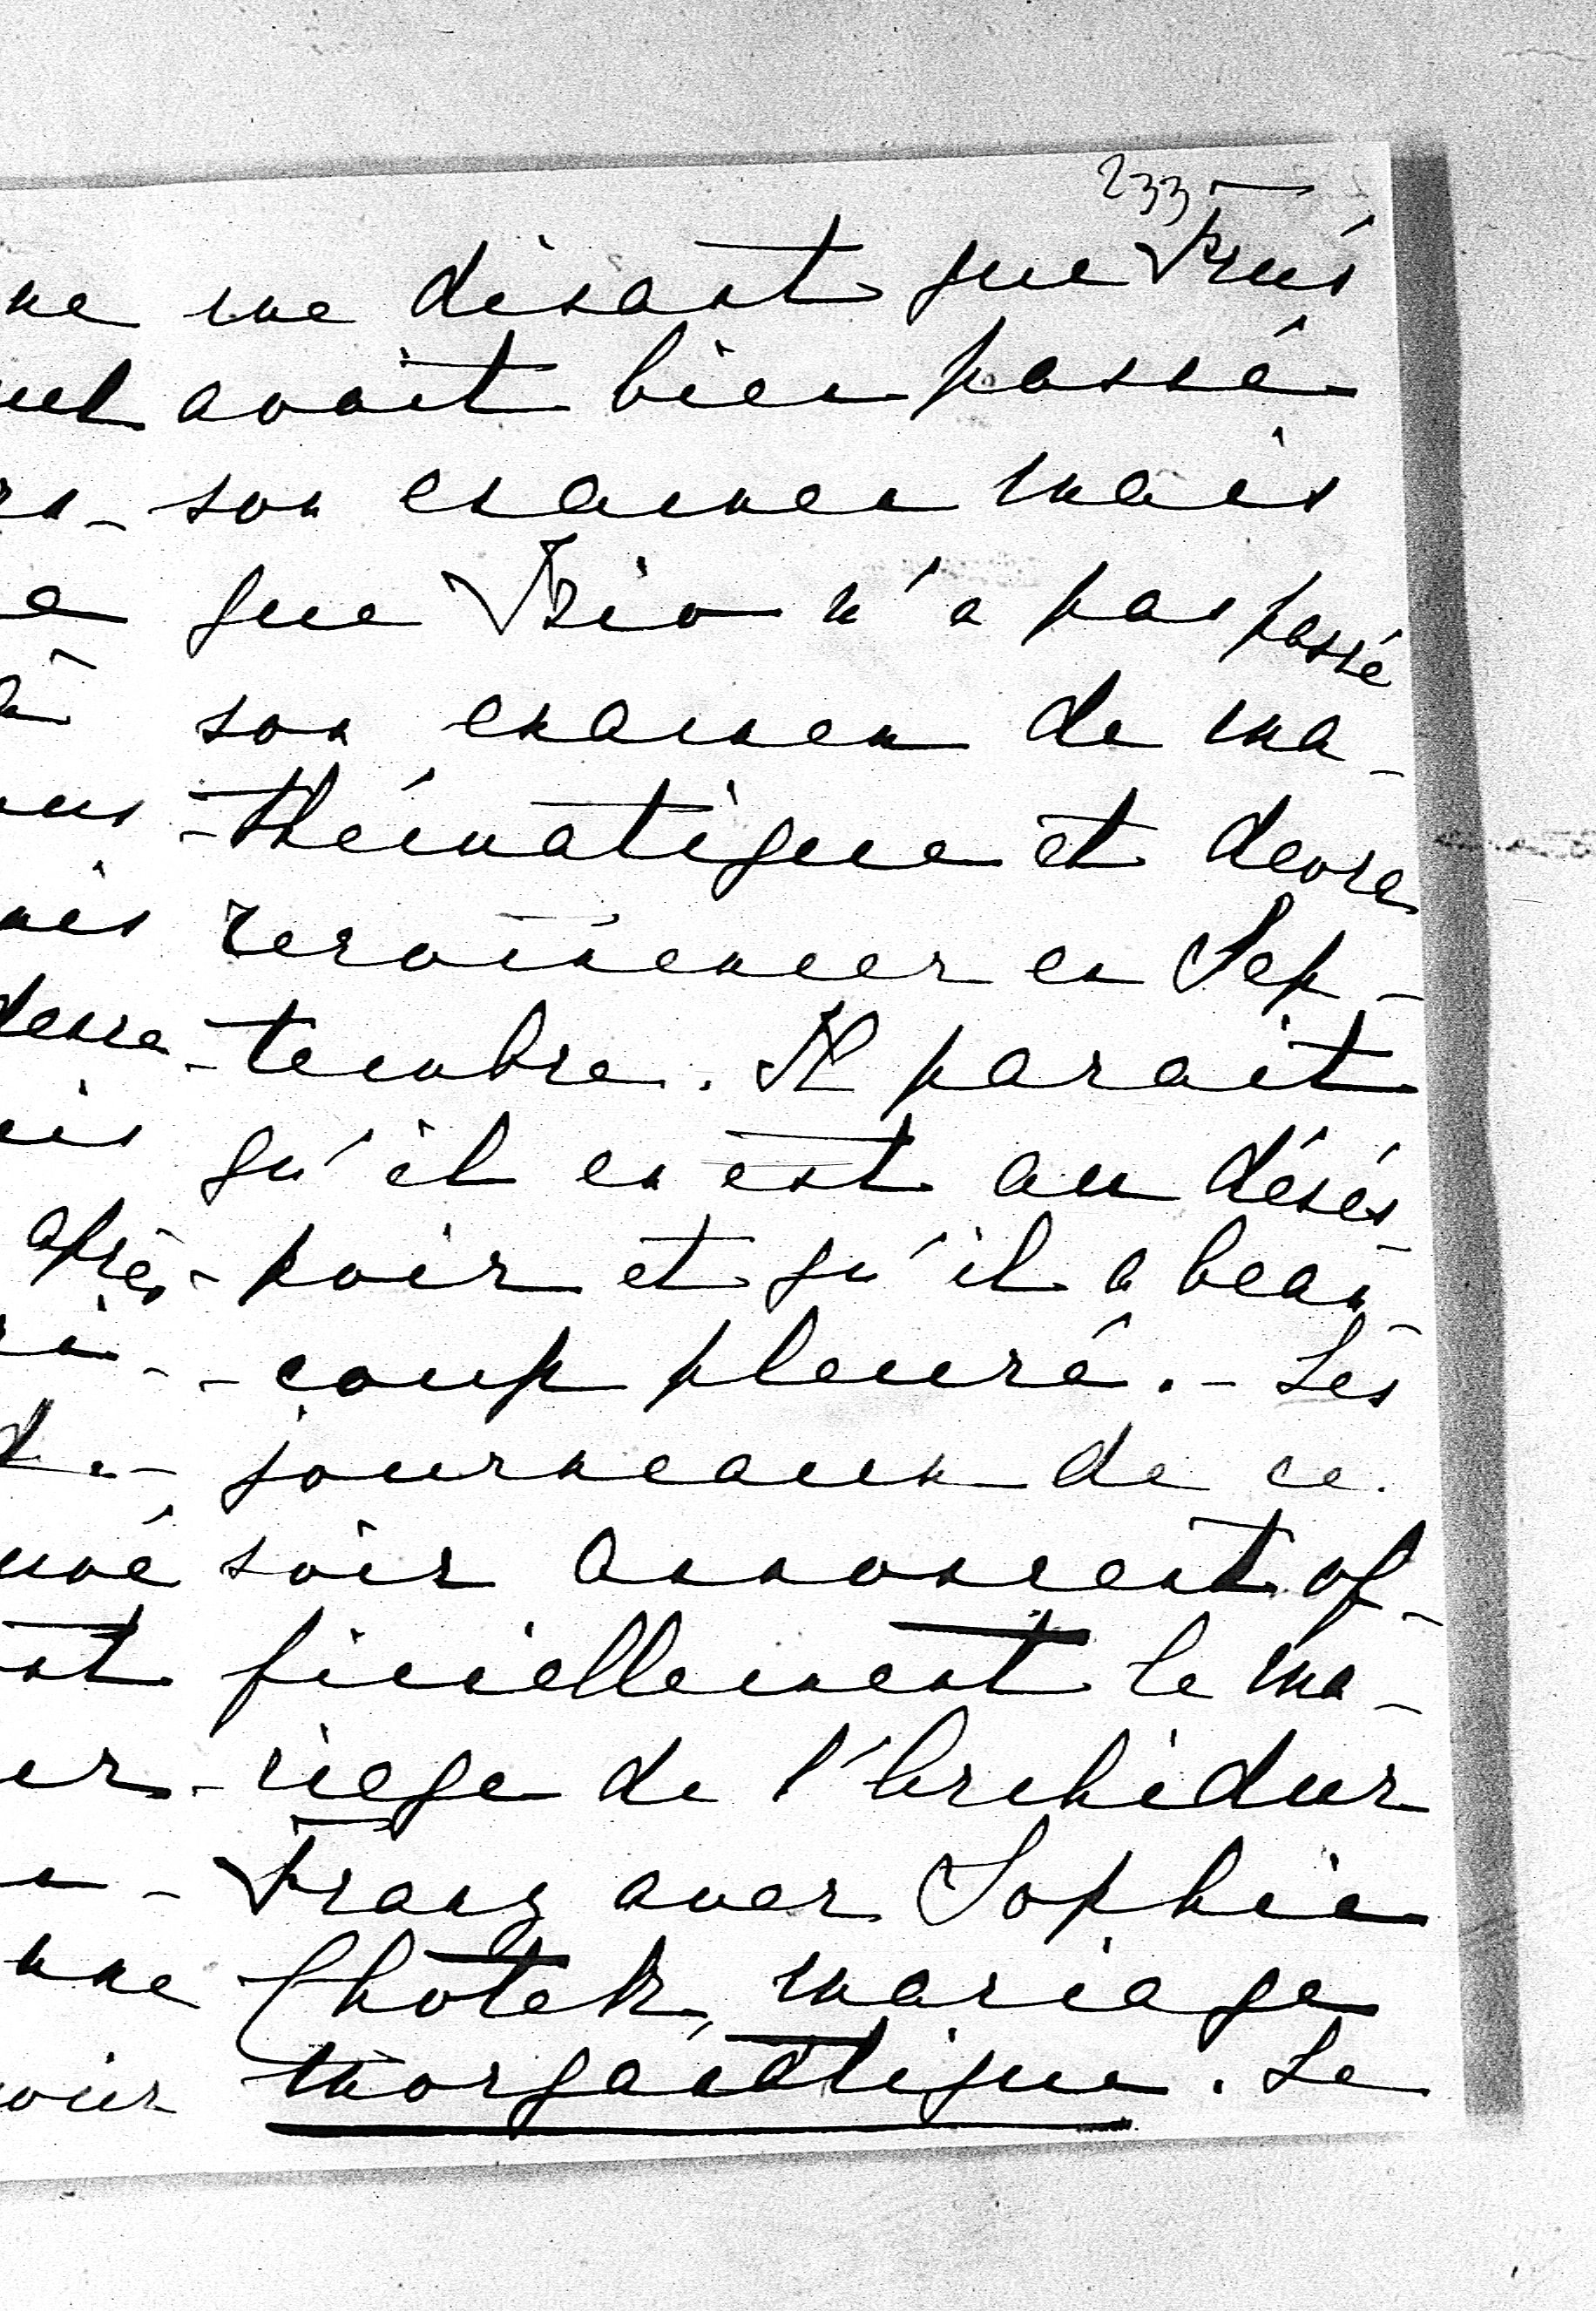 233
me disant que Frus
avait bien passé
son examen mais
que Frio n'a pas passé
son examen de ma-
-thématique et devra
recommencer en Sep-
-tembre. Il parait
qu'il en est au déses
-poir et qu'il a beau
-coup pleuré. - Les
journeaux de ce
soir annoncent of-
ficiellement le ma-
-riage de l'Archiduc
Franz avec Sophie
Chotek, mariage
morganatique. Le